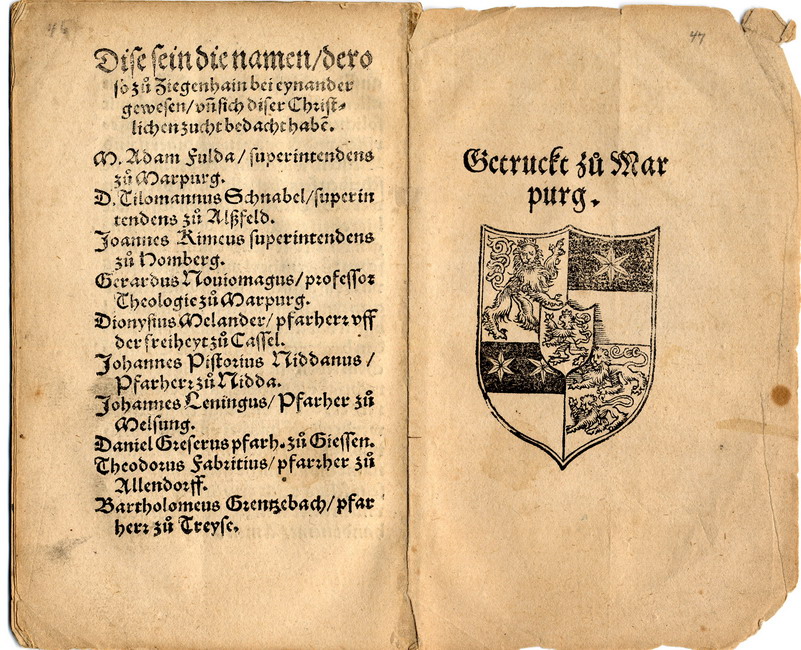 46
Dise sein die namen/dero
so zů Ziegenhain bei eynander
gewesen/vñ sich diser Christ-
lichen zucht bedacht habẽ.
M. Adam Fulda/superintendens
zů Marpurg.
D. Tilomannus Schnabel/superin
tendens zů Alßfeld.
Joannes Kimeus superintendens
zů Homberg.
Gerardus Noviomagus/professor
Theologie zů Marpurg.
Dionysius Melander/pfarherr vff
der freiheyt zů Cassel.
Johannes Pistorius Niddanus/
Pfarherr zů Nidda.
Johannes Leningus/Pfarher zů
Melsung.
Daniel Greserus pfarh. zů Giessen.
Theodorus Fabritius/pfarrher zů
Allendorff.
Bartholomeus Grentzebach/pfar
herr zů Treyse.
47
Getruckt zů Mar
purg.